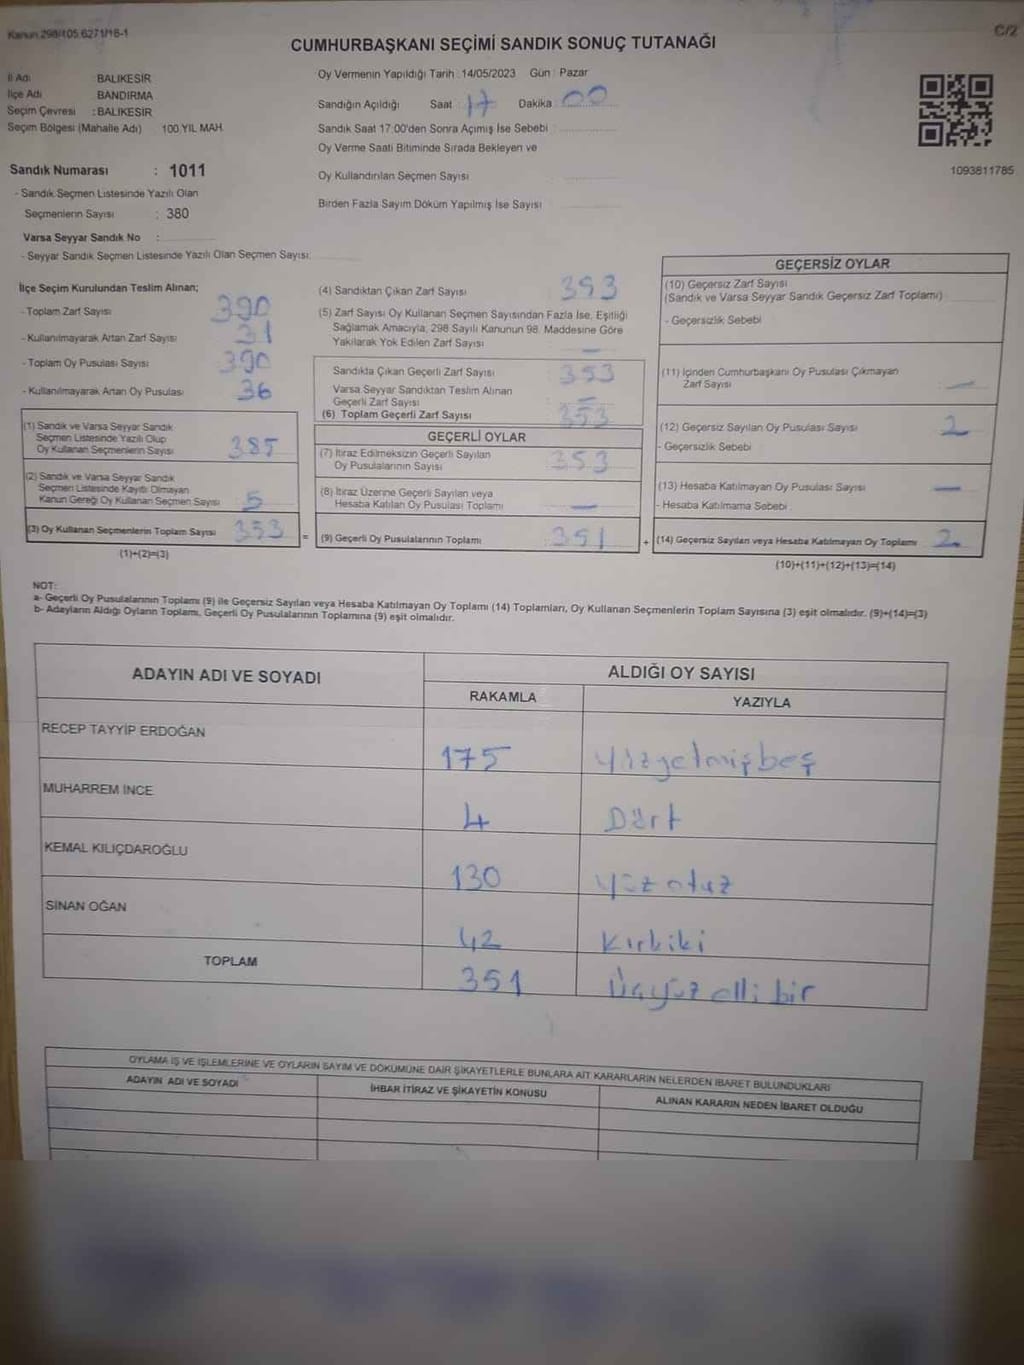 Kanun:298/105.6271/16-1
C/2
CUMHURBAŞKANI SEÇİMİ SANDIK SONUÇ TUTANAĞI
İl Adı : BALIKESİR
İlçe Adı : BANDIRMA
Seçim Çevresi : BALIKESİR
Seçim Bölgesi (Mahalle Adı) 100.YIL MAH.
Sandık Numarası : 1011
- Sandık Seçmen Listesinde Yazılı Olan
Seçmenlerin Sayısı : 380
Varsa Seyyar Sandık No :
- Seyyar Sandık Seçmen Listesinde Yazılı Olan Seçmen Sayısı:
Oy Vermenin Yapıldığı Tarih : 14/05/2023 Gün : Pazar
Sandığın Açıldığı Saat : 17 Dakika : 00
Sandık Saat 17.00'den Sonra Açımış İse Sebebi :
Oy Verme Saati Bitiminde Sırada Bekleyen ve
Oy Kullandırılan Seçmen Sayısı
Birden Fazla Sayım Döküm Yapılmış İse Sayısı :
1093811785
İlçe Seçim Kurulundan Teslim Alınan;
- Toplam Zarf Sayısı 390
- Kullanılmayarak Artan Zarf Sayısı 31
- Toplam Oy Pusulası Sayısı 390
- Kullanılmayarak Artan Oy Pusulası 36
(1) Sandık ve Varsa Seyyar Sandık
Seçmen Listesinde Yazılı Olup
Oy Kullanan Seçmenlerin Sayısı 385
(2) Sandık ve Varsa Seyyar Sandık
Seçmen Listesinde Kayıtlı Olmayan
Kanun Gereği Oy Kullanan Seçmen Sayısı 5
(3) Oy Kullanan Seçmenlerin Toplam Sayısı 353
(1)+(2)=(3)
=
(4) Sandıktan Çıkan Zarf Sayısı 353
(5) Zarf Sayısı Oy Kullanan Seçmen Sayısından Fazla İse, Eşitliği
Sağlamak Amacıyla, 298 Sayılı Kanunun 98. Maddesine Göre
Yakılarak Yok Edilen Zarf Sayısı : —
Sandıkta Çıkan Geçerli Zarf Sayısı : 353
Varsa Seyyar Sandıktan Teslim Alınan
Geçerli Zarf Sayısı : —
(6) Toplam Geçerli Zarf Sayısı : 353
GEÇERLİ OYLAR
(7) İtiraz Edilmeksizin Geçerli Sayılan
Oy Pusulalarının Sayısı : 353
(8) İtiraz Üzerine Geçerli Sayılan veya
Hesaba Katılan Oy Pusulası Toplamı : —
(9) Geçerli Oy Pusulalarının Toplamı : 351
+
GEÇERSİZ OYLAR
(10) Geçersiz Zarf Sayısı
(Sandık ve Varsa Seyyar Sandık Geçersiz Zarf Toplamı)
- Geçersizlik Sebebi :
(11) İçinden Cumhurbaşkanı Oy Pusulası Çıkmayan
Zarf Sayısı : —
(12) Geçersiz Sayılan Oy Pusulası Sayısı : 2
- Geçersizlik Sebebi :
(13) Hesaba Katılmayan Oy Pusulası Sayısı : —
- Hesaba Katılmama Sebebi :
(14) Geçersiz Sayılan veya Hesaba Katılmayan Oy Toplamı : 2
(10)+(11)+(12)+(13)=(14)
NOT:
a- Geçerli Oy Pusulalarının Toplamı (9) ile Geçersiz Sayılan veya Hesaba Katılmayan Oy Toplamı (14) Toplamları, Oy Kullanan Seçmenlerin Toplam Sayısına (3) eşit olmalıdır. (9)+(14)=(3)
b- Adayların Aldığı Oyların Toplamı, Geçerli Oy Pusulalarının Toplamına (9) eşit olmalıdır.
ADAYIN ADI VE SOYADI
ALDIĞI OY SAYISI
RAKAMLA YAZIYLA
RECEP TAYYİP ERDOĞAN 175 Yüzyetmişbeş
MUHARREM İNCE 4 Dört
KEMAL KILIÇDAROĞLU 130 Yüzotuz
SİNAN OĞAN 42 Kırkiki
TOPLAM 351 Üçyüz elli bir
OYLAMA İŞ VE İŞLEMLERİNE VE OYLARIN SAYIM VE DÖKÜMÜNE DAİR ŞİKAYETLERLE BUNLARA AİT KARARLARIN NELERDEN İBARET BULUNDUKLARI
ADAYIN ADI VE SOYADI
İHBAR İTİRAZ VE ŞİKAYETİN KONUSU
ALINAN KARARIN NEDEN İBARET OLDUĞU